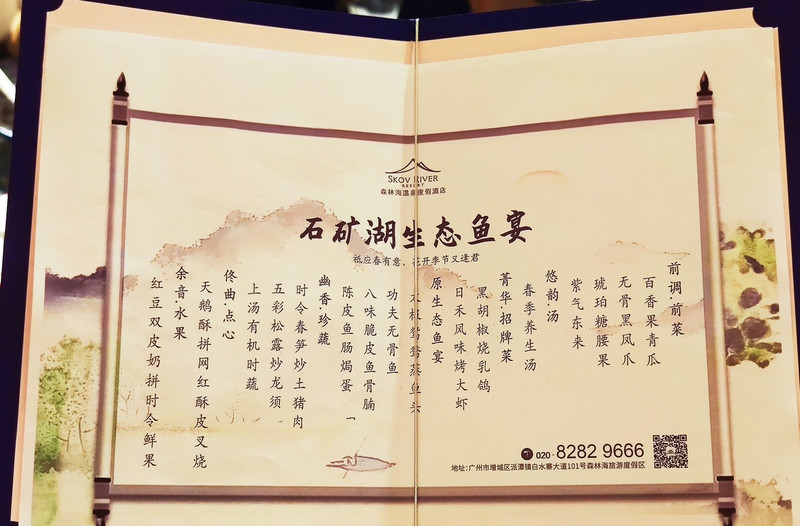 SKOV RIVER
RESORT
森林海温泉度假酒店
石矿湖生态鱼宴
祗应春有意、花开季节又逢君
前调·前菜
百香果青瓜
无骨黑凤爪
琥珀糖腰果
紫气东来
悠韵·汤
春季养生汤
菁华·招牌菜
黑胡椒烧乳鸽
日禾风味烤大虾
原生态鱼宴
椒鸳鸯蒸鱼头
功夫无骨鱼
八味脆皮鱼骨腩
陈皮鱼肠焗蛋
幽香·珍蔬
时令春笋炒土猪肉
五彩松露炒龙须
上汤有机时蔬
佟曲·点心
天鹅酥拼网红酥皮叉烧
余音·水果
红豆双皮奶拼时令鲜果
020-8282 9666
地址:广州市增城区派潭镇白水寨大道101号森林海旅游度假区